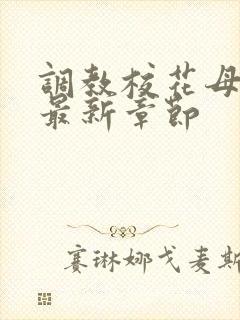 調教校花母
最新章節
赛琳娜戈麦斯